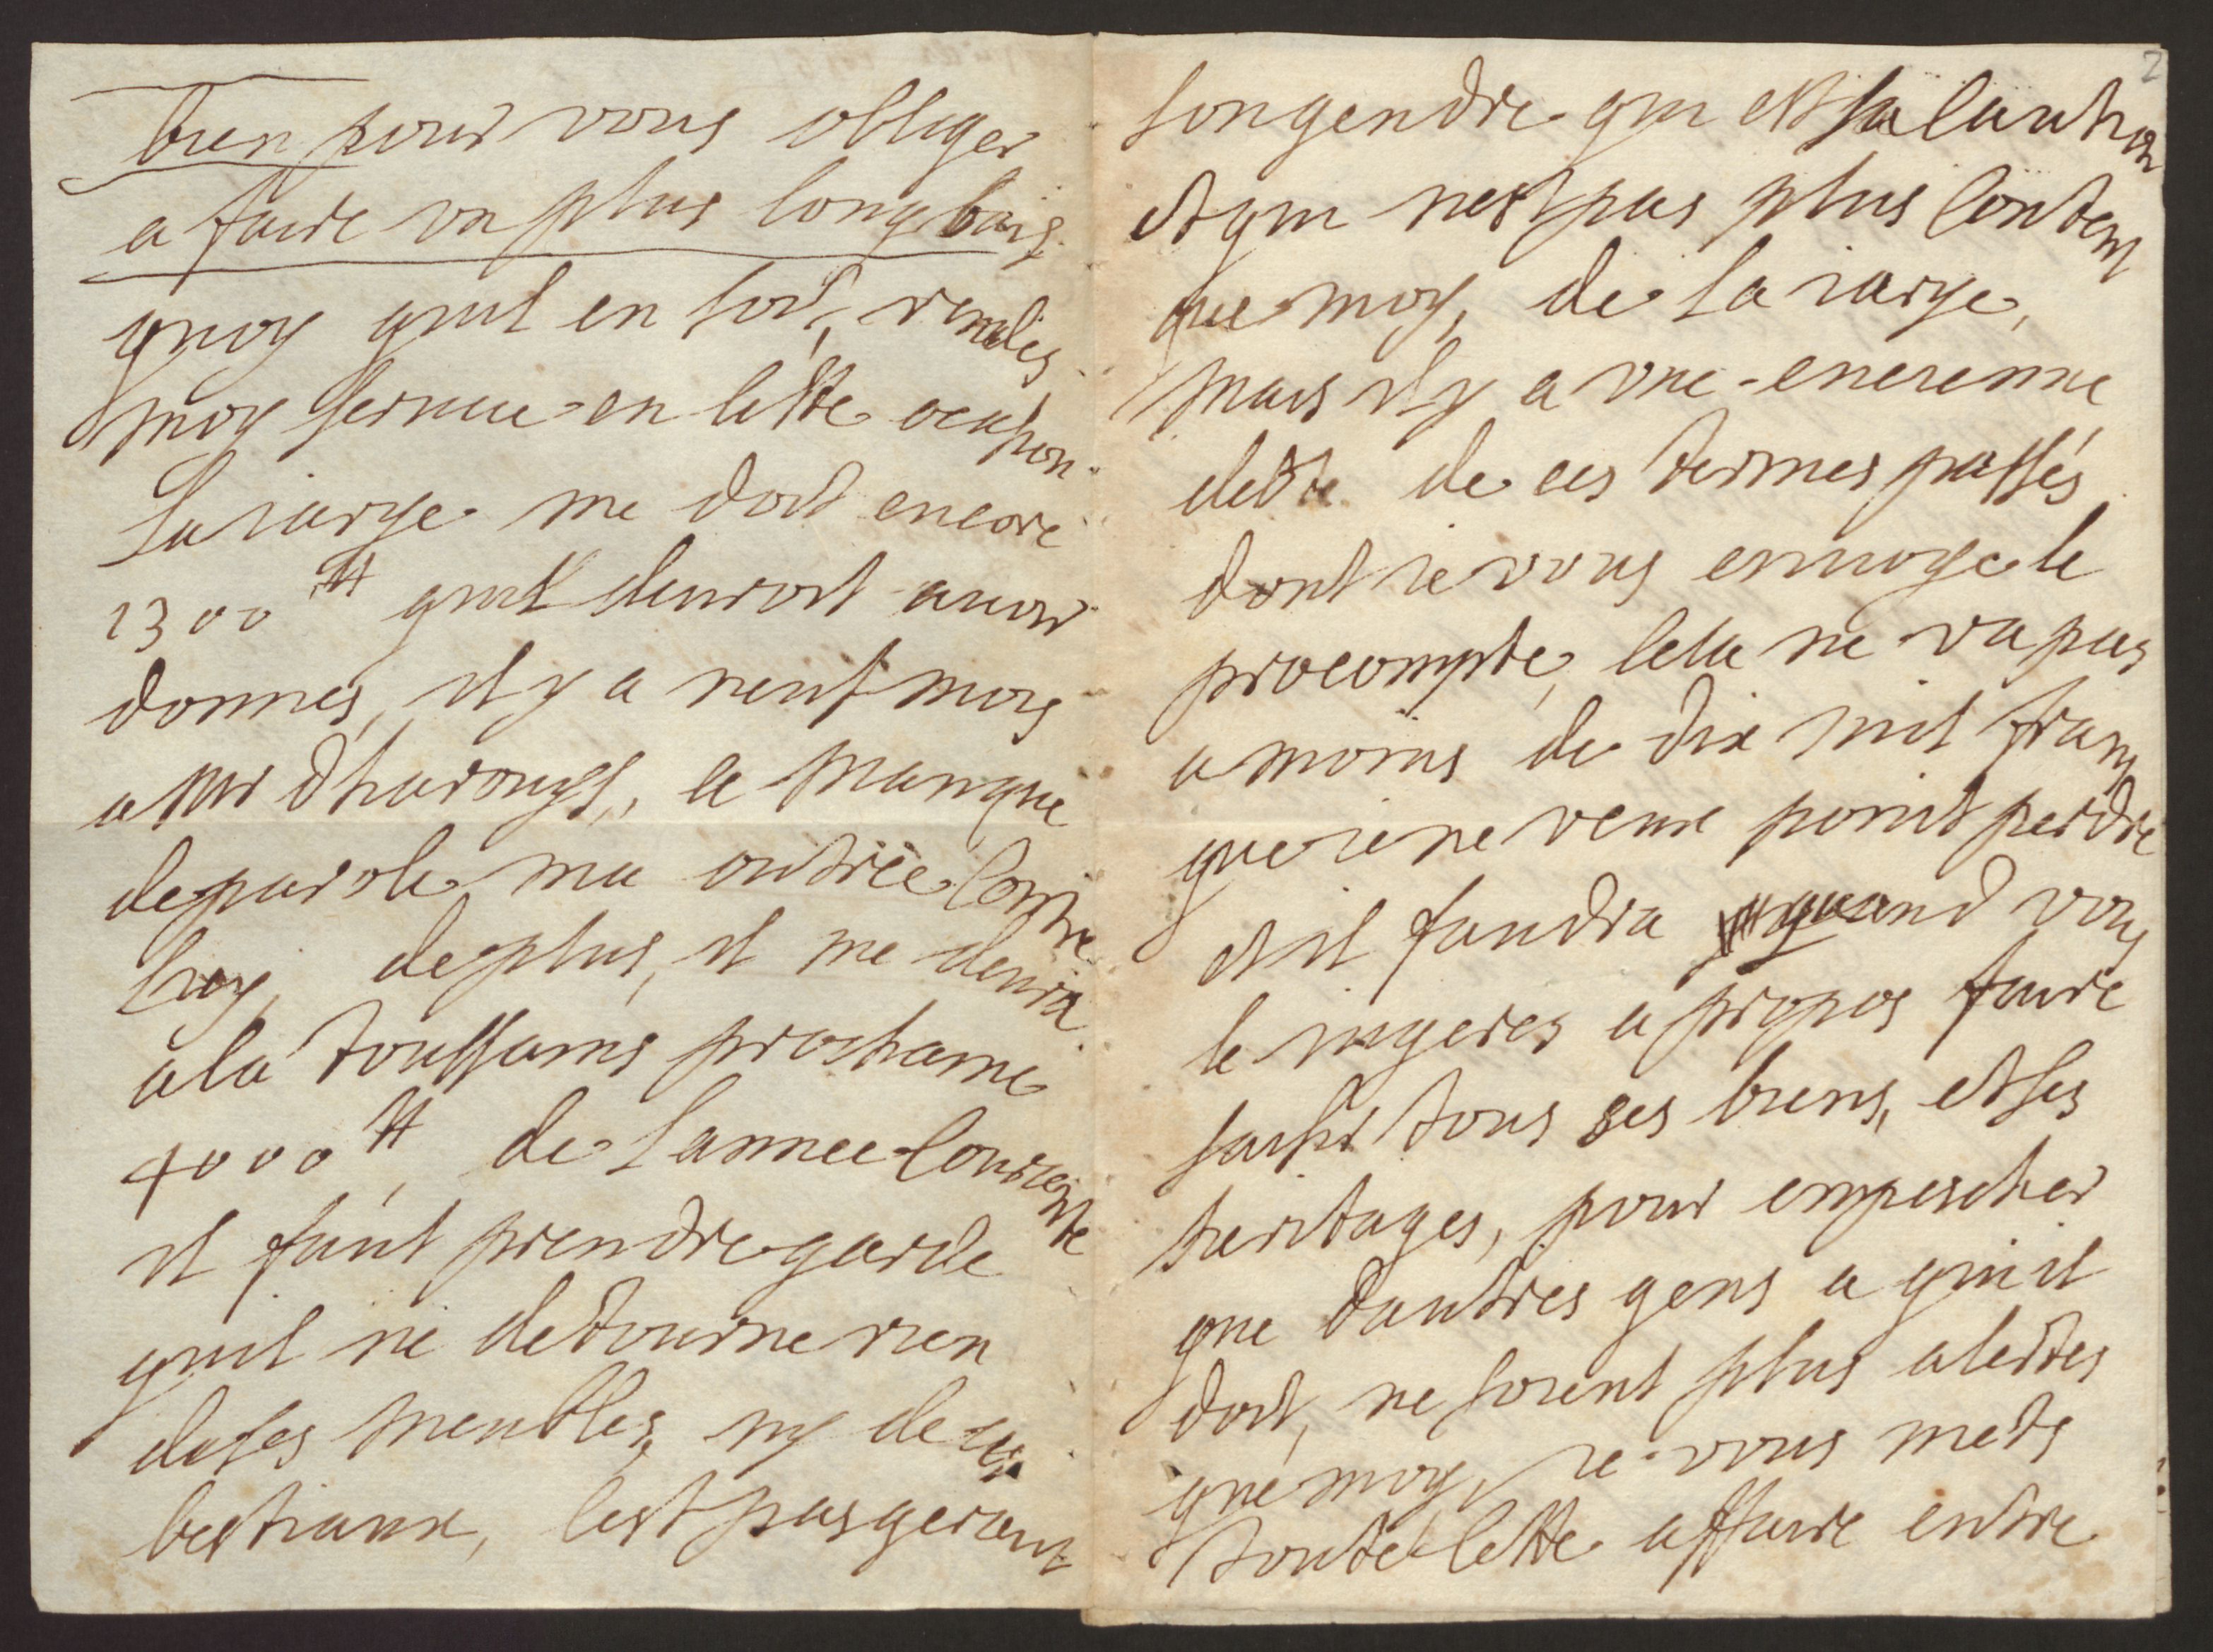 bien pour vous obliger
a faire un plus long bail
quoy quil en soit, rendés
moy service en cette ocasion
la jarge me doit encore
1300 ₶ quil devroit avoir
donnés, il y a neuf mois
a Mr dharouys, ce manque
de parole ma outrée contre
luy, de plus, il me devra
a la toussains prochaine
4000 ₶, de lannee courrente
il faut prendre garde
quil ne detourne rien
de ses meubles, ny de ses
bestiaux, cest pasgerant
2
son gendre qui est sa caution
et qui nest pas plus content
que moy, de la jarge,
mais il y a une encienne
dette de ces termes passés
dont je vous envoye le
procompte, cela ne va pas
a moins de dix mil francs
que je ne veux point perdre
et il faudra quand vous
le jugeres a propos faire
saisir tous ses biens, et ses
heritages, pour empescher
que dautres gens a qui il
doit, ne soient plus alertes
que moy, je vous mets
toute cette affaire entre